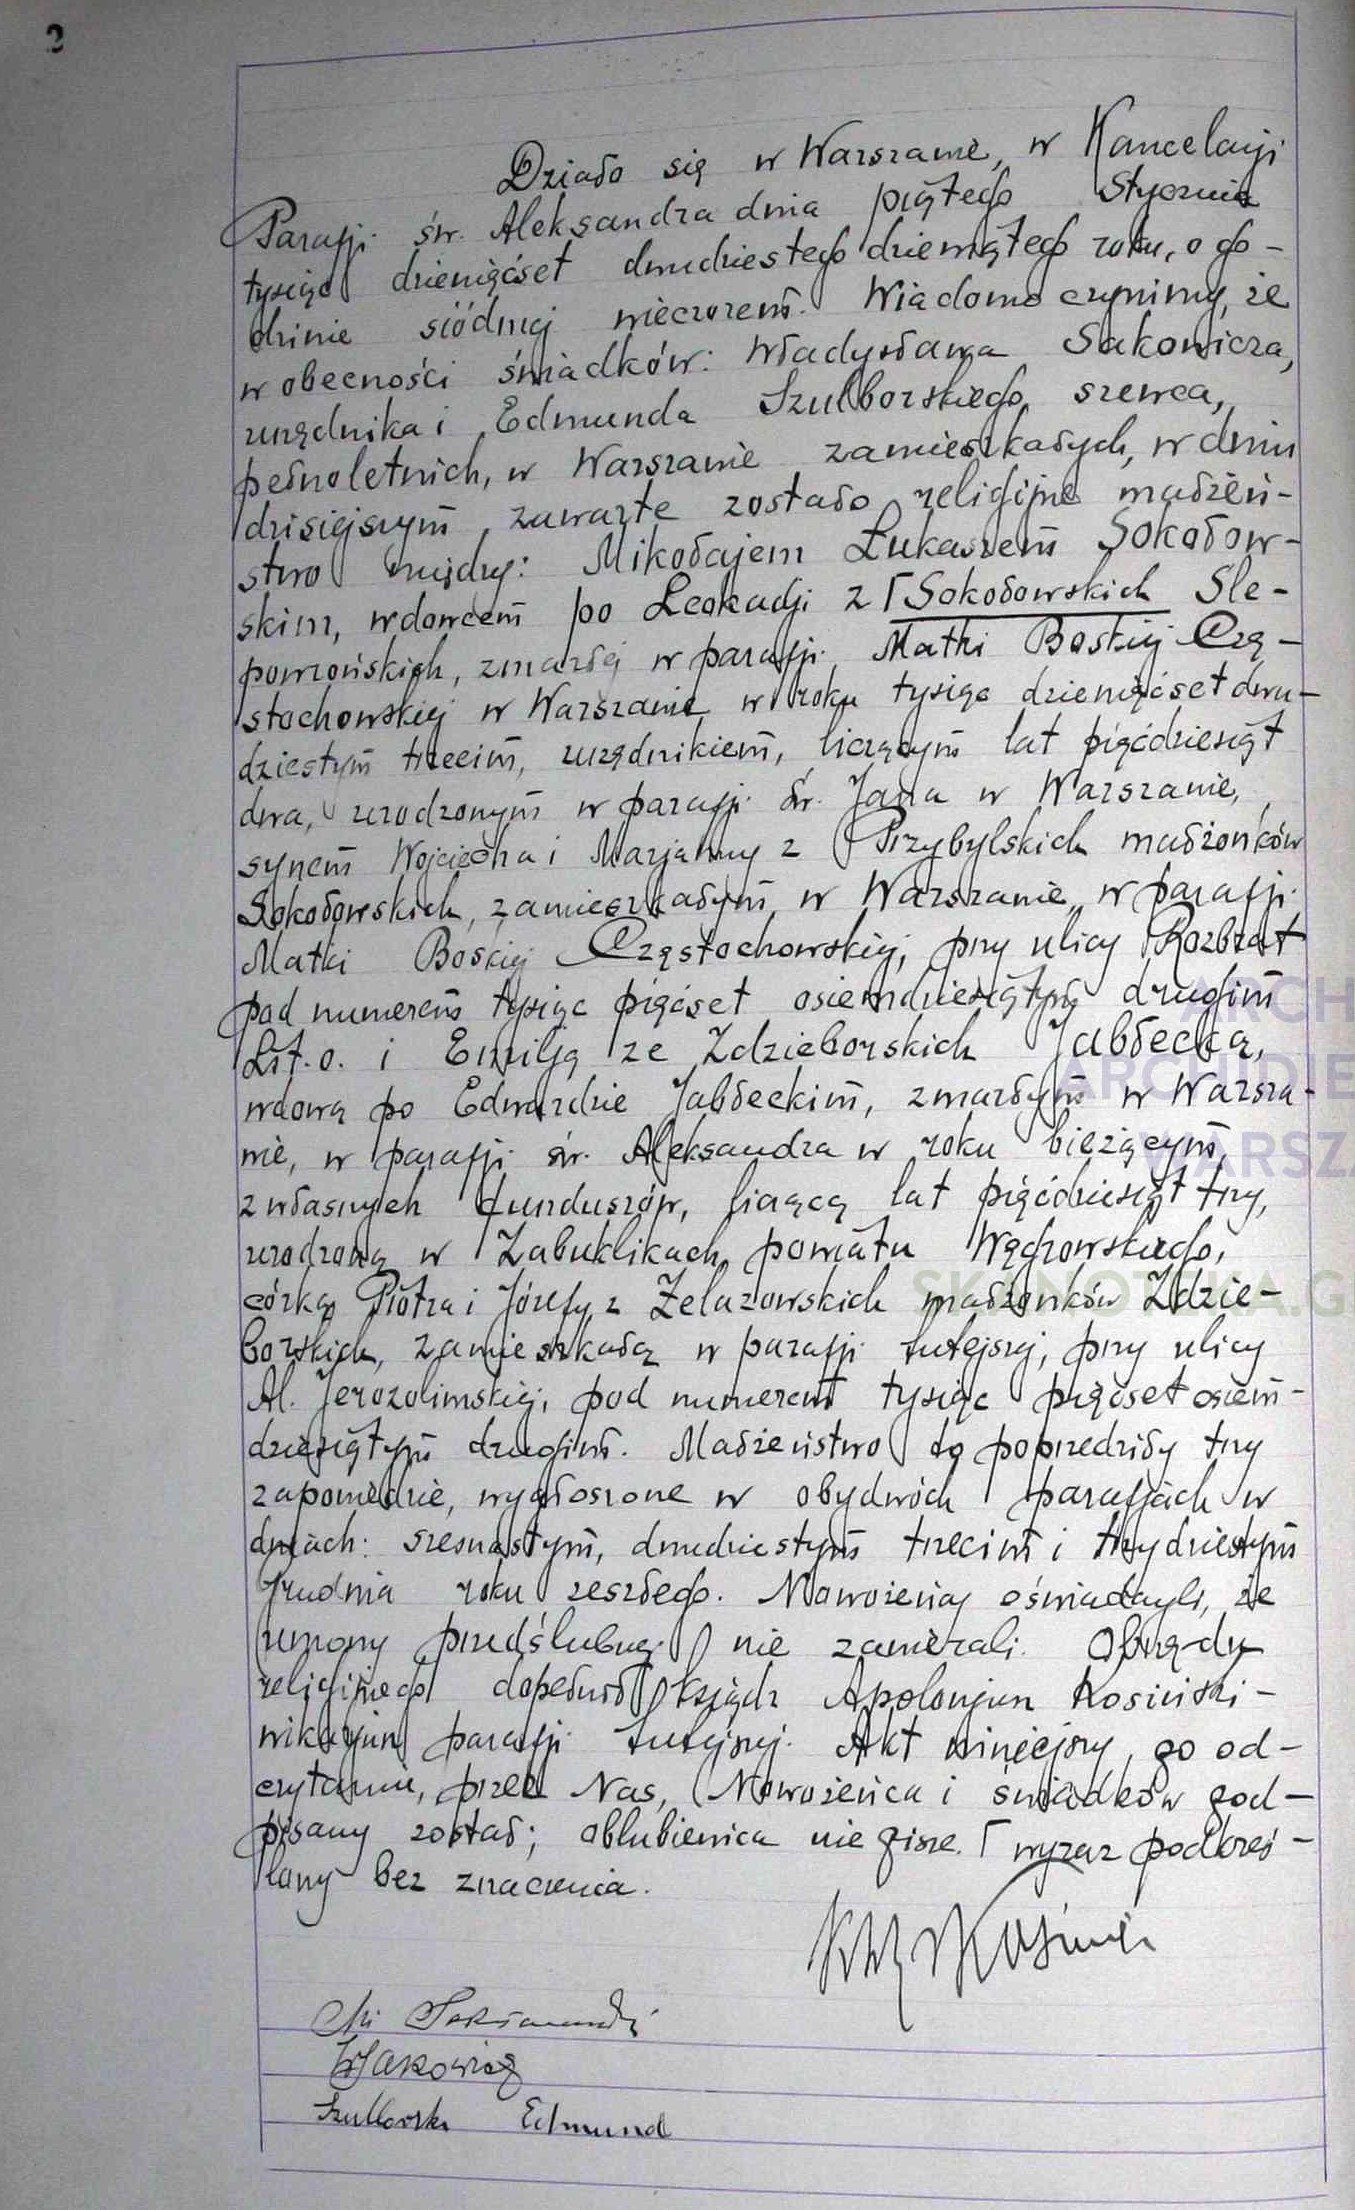 2
Działo się w Warszawie, w Kancelarji
Parafji św. Aleksandra dnia piątego Stycznia
tysiąc dziewięćset dwudziestego dziewiątego roku, o go-
dzinie siódmej wieczorem. Wiadomo czynimy, że
w obecności świadków: Władysława Sakowicza,
urzędnika i Edmunda Szulborskiego, szewca,
pełnoletnich, w Warszawie zamieszkałych, w dniu
dzisiejszym zawarte zostało religijne małżeń-
stwo między: Mikołajem Łukaszem Sokołow-
skim, wdowcem po Leokadji z Γ Sokołowskich Śle-
powrońskich, zmarłej w parafji Matki Boskiej Czę-
stochowskiej w Warszawie w roku tysiąc dziewięćset dwu-
dziestym trzecim, urzędnikiem, liczącym lat pięćdziesiąt
dwa, urodzonym w parafji św. Jana w Warszawie,
synem Wojciecha i Marjanny z Przybylskich małżonków
Sokołowskich, zamieszkałym w Warszawie, w parafji
Matki Boskiej Częstochowskiej, przy ulicy Rozbrat
pod numerem tysiąc pięćset osiemdziesiątym drugim
Lit. o. i Emilją ze Zdzieborskich Jabłecką,
wdową po Edwardzie Jabłeckim, zmarłym w Warsza-
wie, w parafji św. Aleksandra w roku bieżącym,
z własnych funduszów, liczącą lat pięćdziesiąt trzy,
urodzoną w Zabuklikach powiatu Węgrowskiego,
córką Piotra i Józefy z Żelazowskich małżonków Zdzie-
borskich, zamieszkałą w parafji tutejszej, przy ulicy
Al. Jerozolimskiej, pod numerem tysiąc pięćset osiem-
dziesiątym drugim. Małżeństwo to poprzedziły trzy
zapowiedzie, wygłoszone w obydwóch parafjach w
dniach: szesnastym, dwudziestym trzecim i trzydziestym
Grudnia roku zeszłego. Nowożeńcy oświadczyli, że
umowy przedślubnej nie zawierali. Obrzędu
religijnego dopełnił ksiądz Apolonjusz Kosiński-
wikarjusz parafji tutejszej. Akt niniejszy, po od-
czytaniu, przez Nas, Nowożeńca i świadków pod-
pisany został; oblubienica nie pisze. Γ wyraz podkreś-
lany bez znaczenia.
Mi Sokołowski
WSakowicz
Szulborski Edmund
ARCH
ARCHIDIE
WARSZA
SKANOTEKA.G